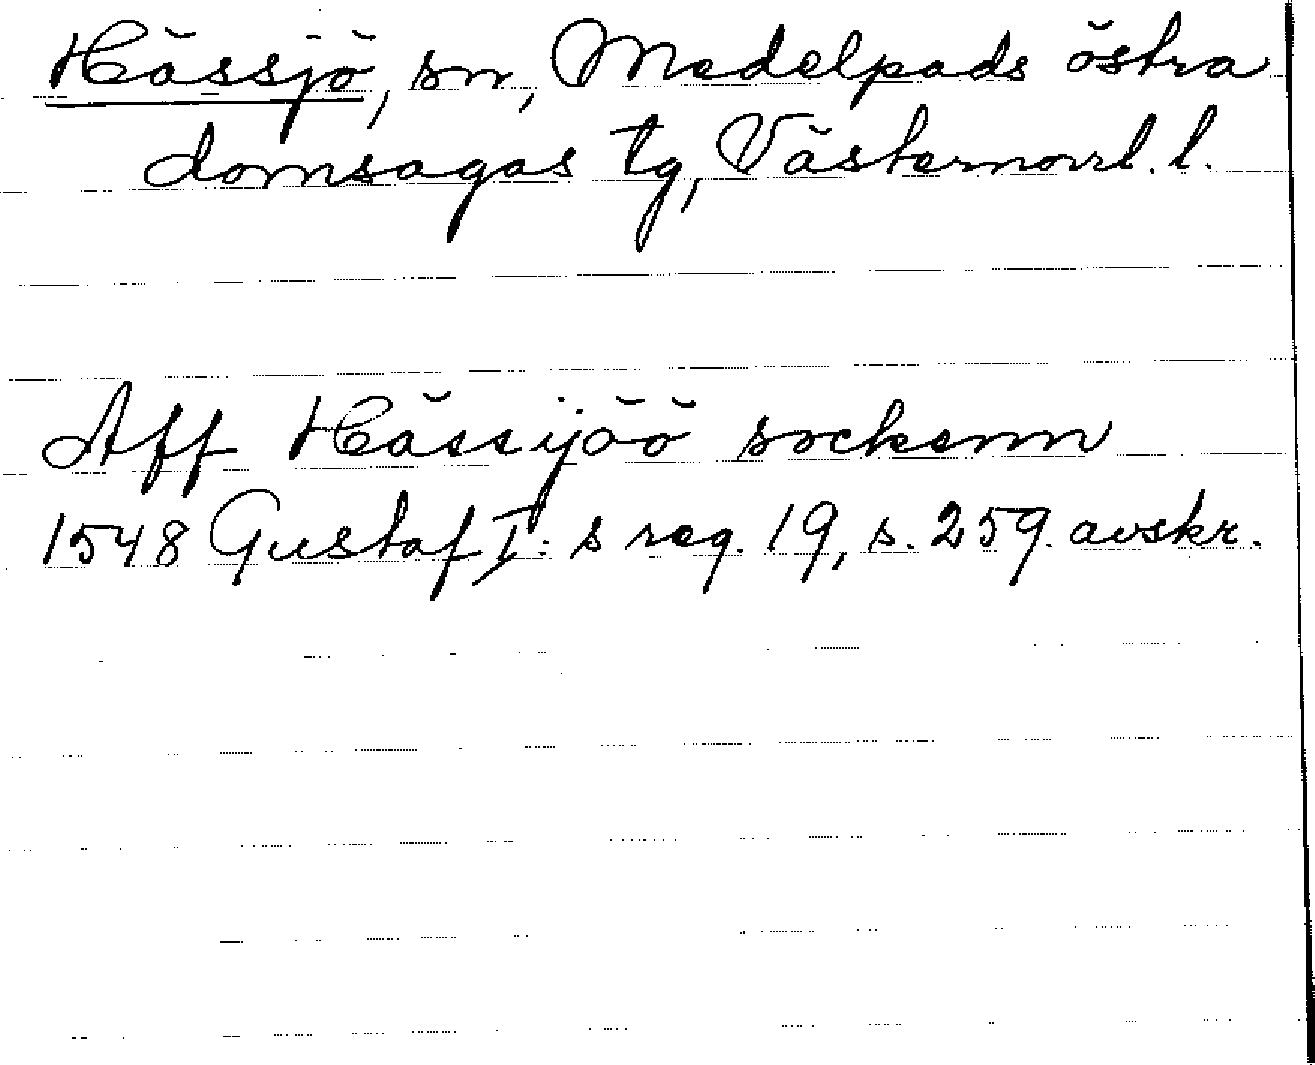 Hässjö, sn, Medelpads östra
domsagas tg, Västernorrl. l.
Aff Hässijöö sockenn
1548 Gustaf I:s reg. 19, s. 259. avskr.